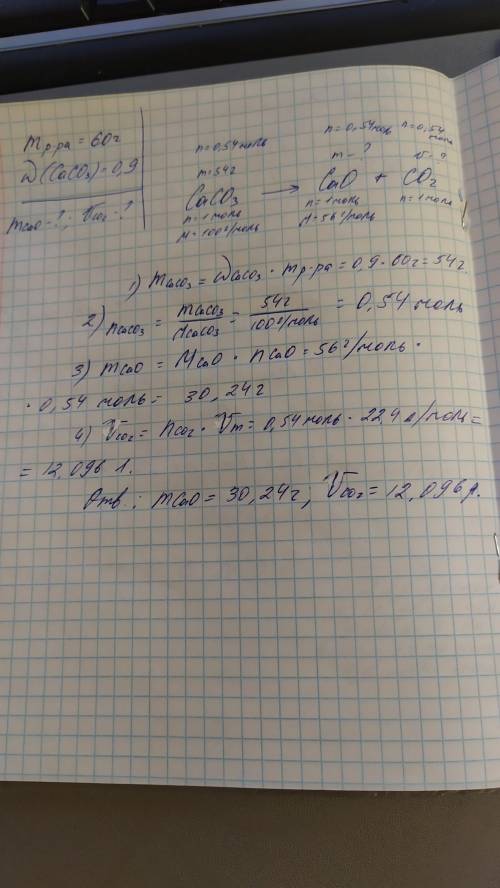 mр-ра = 60г
W(CaCO3)=0,9
mCaO-?; VCO2-?
n=0,54моль n=0,54моль n=0,54моль
m=54г m-? V-?
CaCO3 → CaO + CO2
n=1моль n=1моль n=1моль
M=100г/моль M=56г/моль
1) mCaCO3 = WCaCO3 · mр-ра = 0,9 · 60г = 54г.
2) nCaCO3 = mCaCO3/MCaCO3 = 54г/100г/моль = 0,54 моль
3) mCaO = MCaO · nCaO = 56г/моль ·
· 0,54 моль = 30,24г
4) VCO2 = nCO2 · Vm = 0,54моль · 22,4л/моль =
= 12,096 л.
Отв: mCaO = 30,24г, VCO2 = 12,096л.